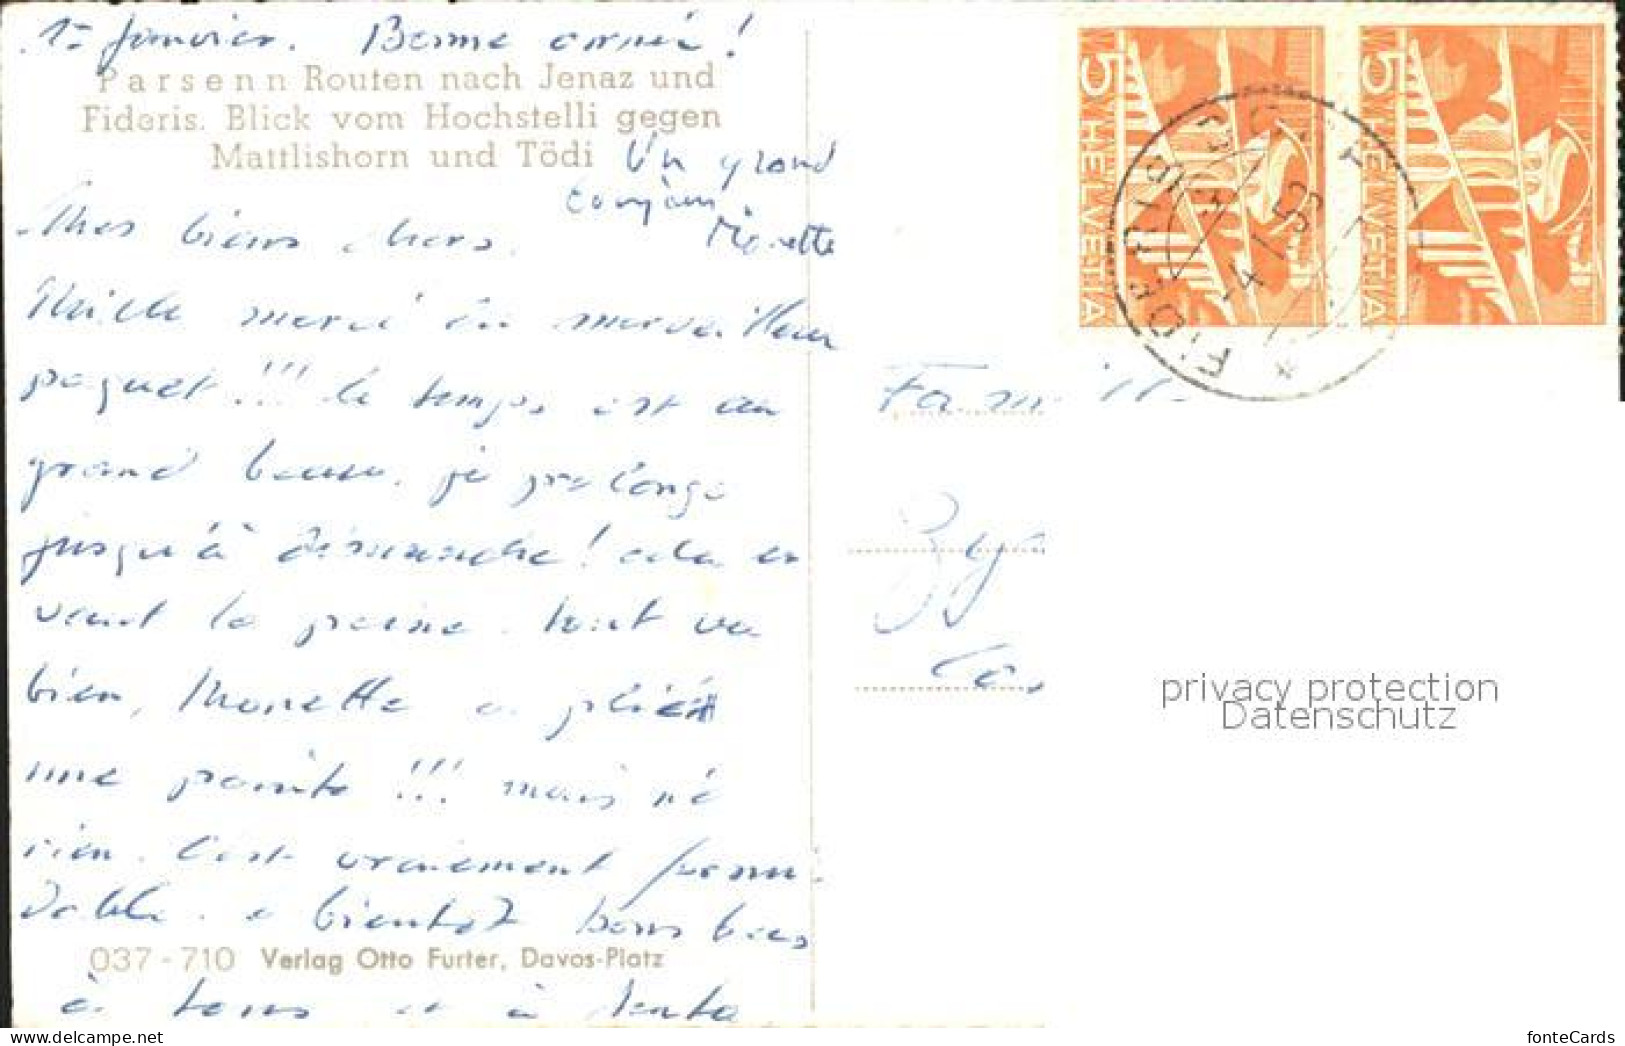 1er janvier. Bonne année !
Parsenn Routen nach Jenaz und
Fideris. Blick vom Hochstelli gegen
Mattlishorn und Tödi
Un grand
Monette
Mes biens chers.
Mille merci du merveilleux
paquet !!! le temps est au
grand beau, je prolonge
jusqu'à dimanche ! cela en
vaut la peine. tout va
bien, Monette a plié
une pointe !!! mais n'a
rien. C'est vraiment formi-
dable. a bientot bons becs
037-710 Verlag Otto Furter, Davos-Platz
à tous et à
5 HELVETIA
5 HELVETIA
-4.1.53
Famille
privacy protection
Datenschutz
fonteCards
www.delcampe.net